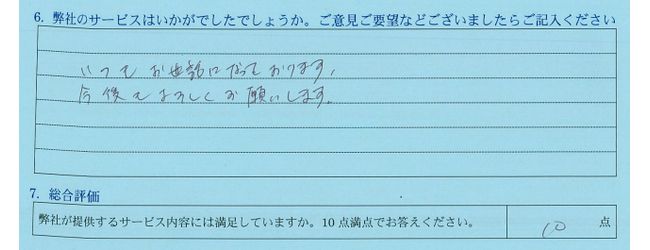 6. 弊社のサービスはいかがでしたでしょうか。ご意見ご要望などございましたらご記入ください
いつもお世話になっております。
今後もよろしくお願いします。
7. 総合評価
弊社が提供するサービス内容には満足していますか。10 点満点でお答えください。 10 点